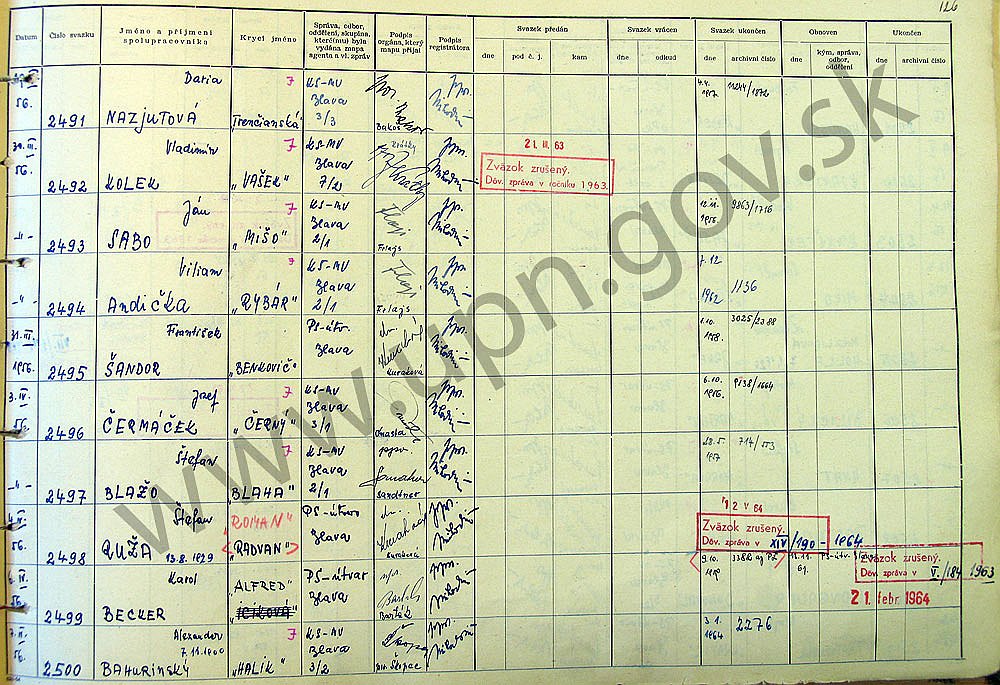 126
Datum
Číslo svazku
Jméno a příjmení spolupracovníka
Krycí jméno
Správa, odbor, oddělení, skupina, které(mu) byla vydána mapa agenta a vl. zpráv
Podpis orgána, který mapu přijal
Podpis registrátora
Svazek předán
dne
pod č. j.
kam
Svazek vrácen
dne
odkud
Svazek ukončen
dne
archivní číslo
Obnoven
dne
kým, správa, odbor, oddělení
Ukončen
dne
archivní číslo
56.
2491
Daria
NAZJUTOVÁ
7
Trenčianská
KS-MV
Ilava
3/3
Bakoš
11244/1872
56.
2492
Vladimír
KOLEK
7
„VAŠEK"
KS-MV
Ilava
7/2
21. III. 63
Zväzok zrušený.
Dôv. zpráva v ročníku 1963.
-"-
2493
Ján
SABO
7
„MIŠO"
KS-MV
Ilava
2/1
Frlajs
1956.
9863/1716
-"-
2494
Viliam
ANDIČKA
7
„RYBÁR"
KS-MV
Ilava
2/1
Frlajs
7.12
1962
1136
31. III.
1956.
2495
František
ŠÁNDOR
„BENKOVIČ"
PS-útv.
Ilava
Kuraková
1.10.
1958.
3025/2388
3. IV.
56.
2496
Jozef
ČERMÁČEK
7
„ČERNÝ"
KS-MV
Ilava
3/1
6.10.
1956.
9138/1664
-"-
2497
Štefan
BLAŽO
7
„BLAHA"
KS-MV
Ilava
2/1
Sandtner
28.5.
1957
714/553
56.
2498
Štefan
RUŽA
13.8.1929
ROMAN"
„RADVAN"
PS-útvar
Ilava
Kuraková
12 V 64
Zväzok zrušený.
Dôv. zpráva v XIV/190 - 1964.
56.
2499
Karol
BECKER
„ALFRED"
PS-útvar
Ilava
Barták
9.10.
61.
Zväzok zrušený.
Dôv. zpráva v V./184 1963
21. febr. 1964
56.
2500
Alexander
7.11.1900
BAHURINSKÝ
7
„HALÍK"
KS-MV
Ilava
3/2
Škopec
3.1.
1964
2276
www.upn.gov.sk